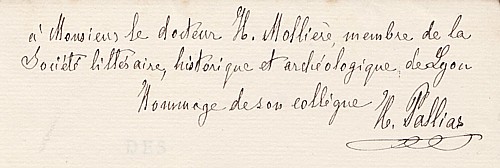 à Monsieur le docteur H. Mollière, membre de la
Société littéraire, historique et archéologique, de Lyon
Hommage de son collègue
H. Pallias
DES